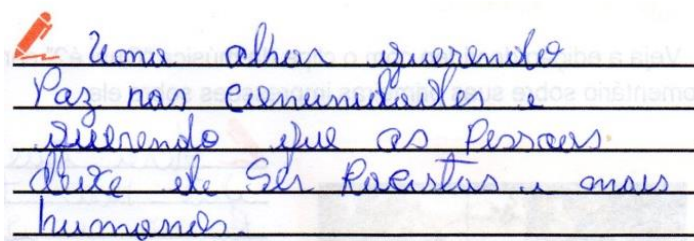 Uma olhar querendo
Paz nas comunidades e
querendo que as Pessoas
deixe de Ser Racistas e mais
humanos.